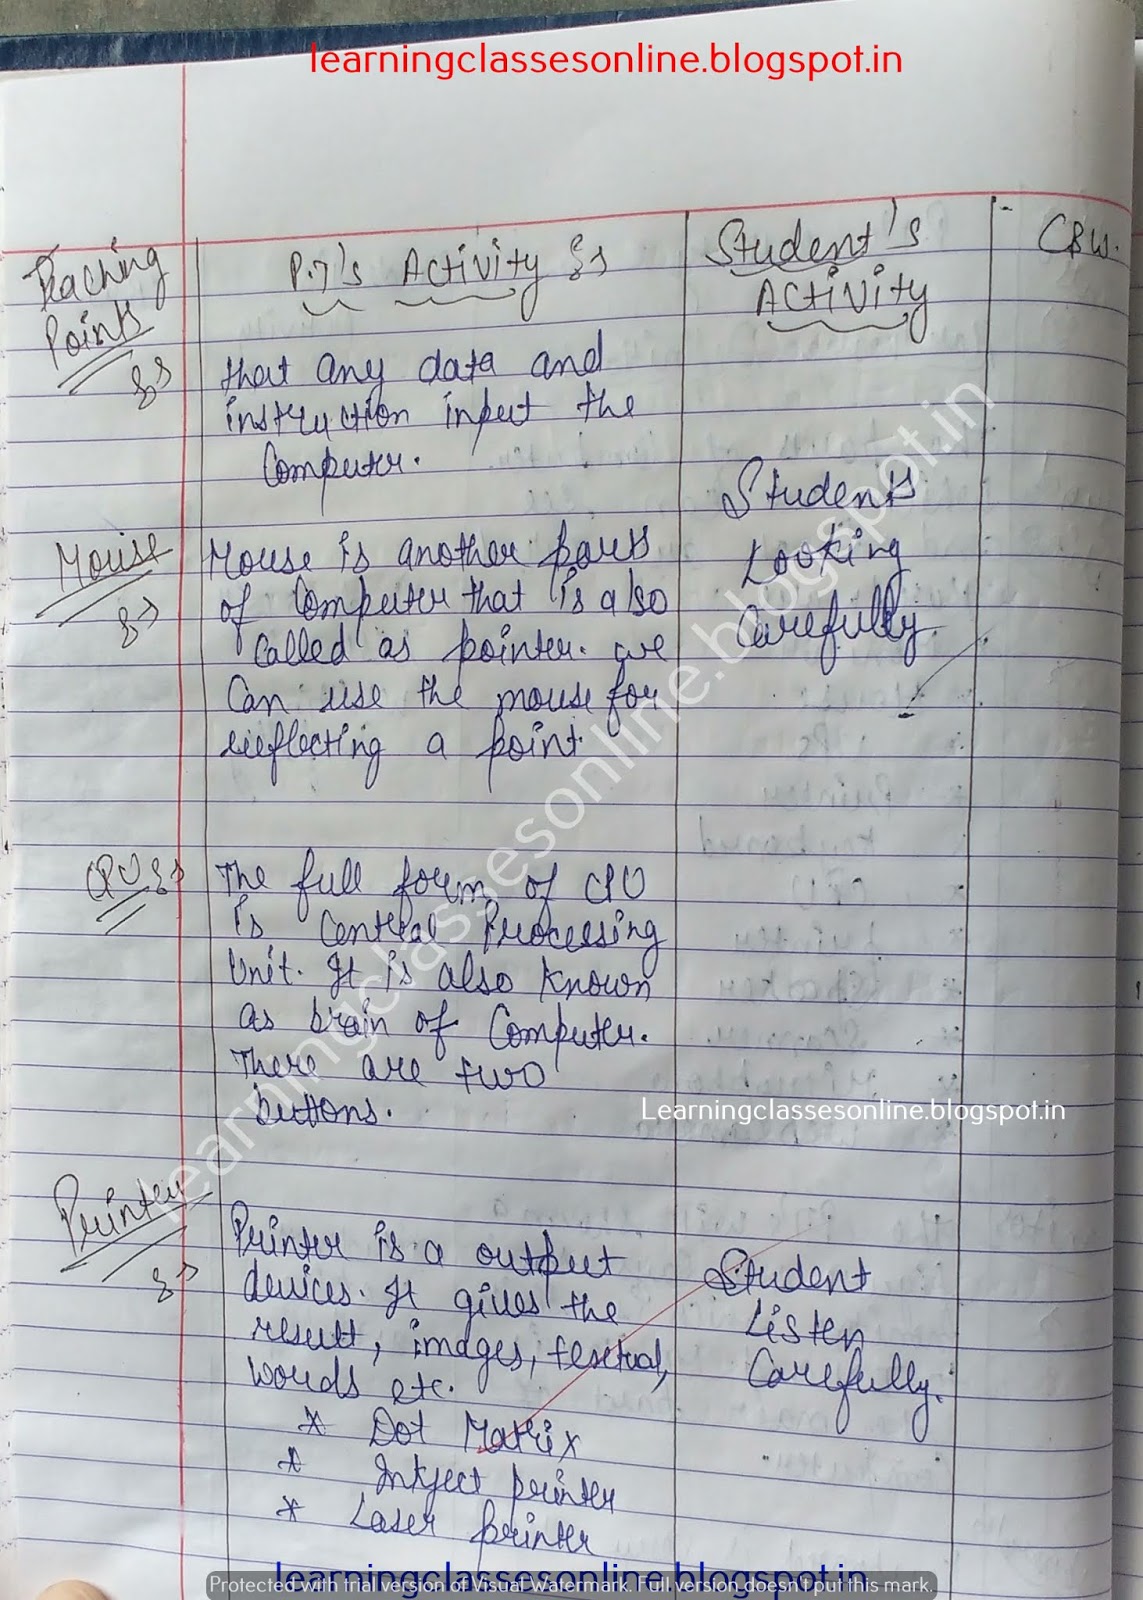 learningclassesonline.blogspot.in
Teaching
Points
P.T's Activity
Student's
Activity
C.B.W.
that any data and
instruction input the
Computer.
Students
Looking
Carefully.
Mouse
Mouse is another parts
of Computer that is also
called as pointer. we
Can use the mouse for
reflecting a point.
CPU
The full form of CPU
is Central Processing
Unit. It is also known
as brain of Computer.
There are two
buttons.
Learningclassesonline.blogspot.in
learningclassesonline.blogspot.in
Printer
Printer is a output
devices. It gives the
result, images, textual,
words etc.
* Dot Matrix
* Inkject printer
* Laser printer
Student
Listen
Carefully.
learningclassesonline.blogspot.in
Protected with trial version of Visual Watermark. Full version doesn't put this mark.